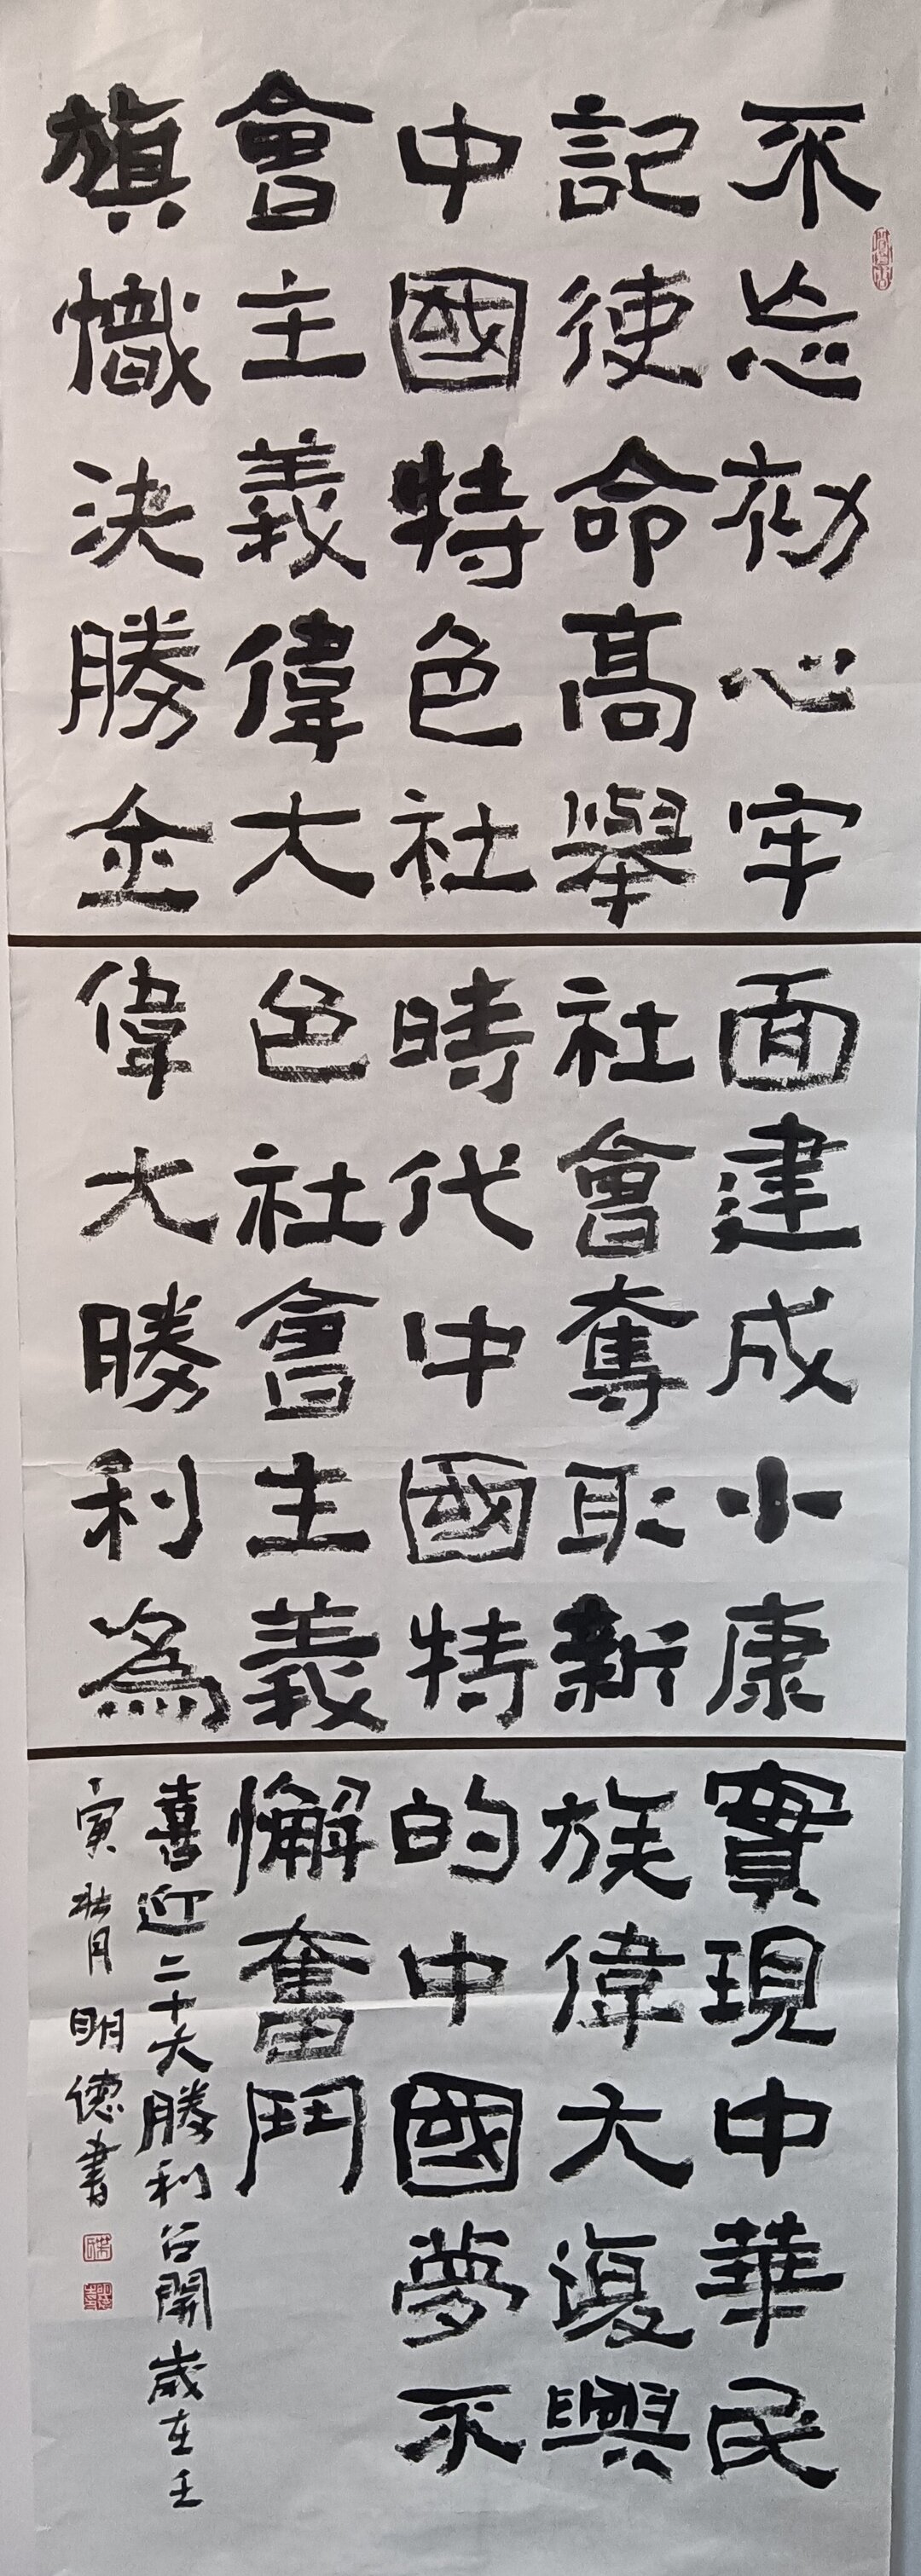 不忘初心牢
記使命高舉
中國特色社
會主義偉大
旗幟決勝全
面建成小康
社會奪取新
時代中國特
色社會主義
偉大勝利為
實現中華民
族偉大復興
的中國夢不
懈奮鬥
喜迎二十大勝利召開歲在壬
寅 月明德書